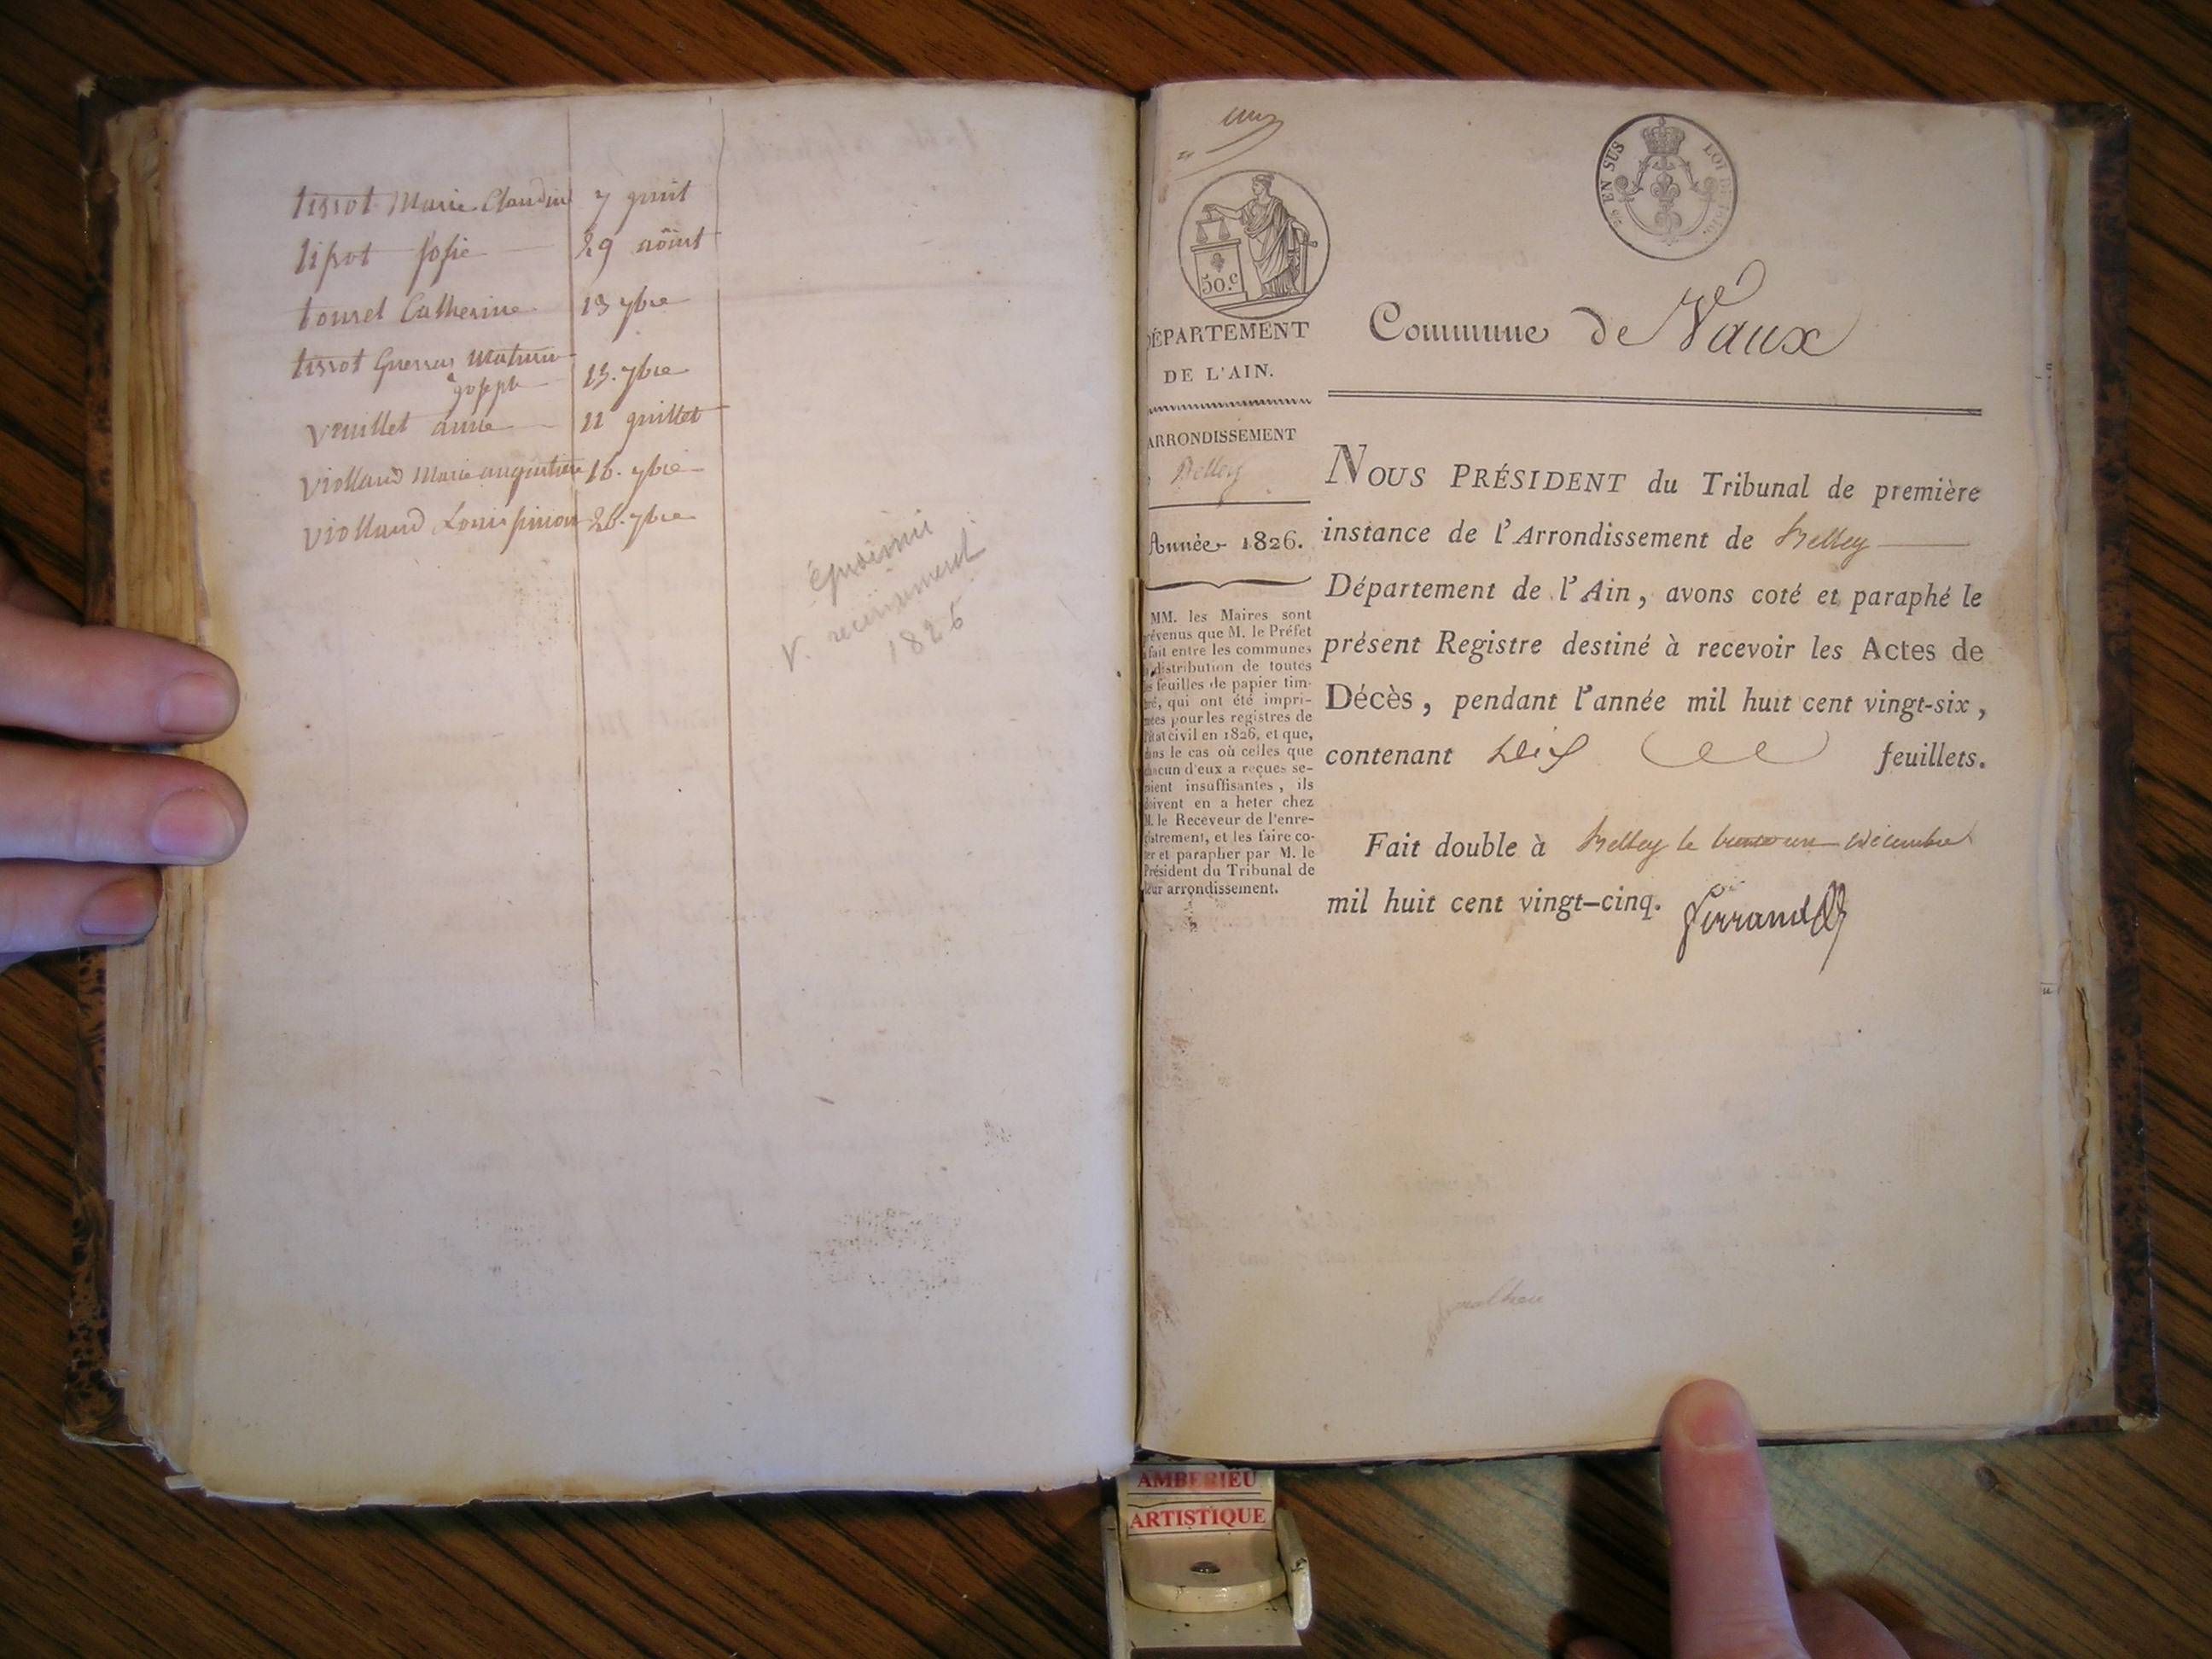 tissot Marie Claudin 7 juin
tissot josie 29 aôust
tournel Catherine 13 7bre
tissot Guerras Maturin
joseph 15. 7bre
Vuillet anne 11 juillet
Violland Marie augustine 16. 7bre
Violland Louis 26. 7bre
V. recensement
1826
50.c
EN SUS
LOI DE
DÉPARTEMENT
DE L'AIN.
ARRONDISSEMENT
Belley
Année 1826.
MM. les Maires sont
prévenus que M. le Préfet
fait entre les communes
distribution de toutes
les feuilles de papier tim-
bré, qui ont été impri-
mées pour les registres de
l'état civil en 1826, et que,
dans le cas où celles que
chacun d'eux a reçues se-
roient insuffisantes, ils
doivent en a heter chez
M. le Receveur de l'enre-
gistrement, et les faire co-
ter et parapher par M. le
Président du Tribunal de
leur arrondissement.
Commune de Vaux
NOUS PRÉSIDENT du Tribunal de première
instance de l'Arrondissement de Belley
Département de l'Ain, avons coté et paraphé le
présent Registre destiné à recevoir les Actes de
Décès, pendant l'année mil huit cent vingt-six,
contenant dix feuillets.
Fait double à Belley le trente un décembre
mil huit cent vingt-cinq.
Ferrand
AMBERIEU
ARTISTIQUE